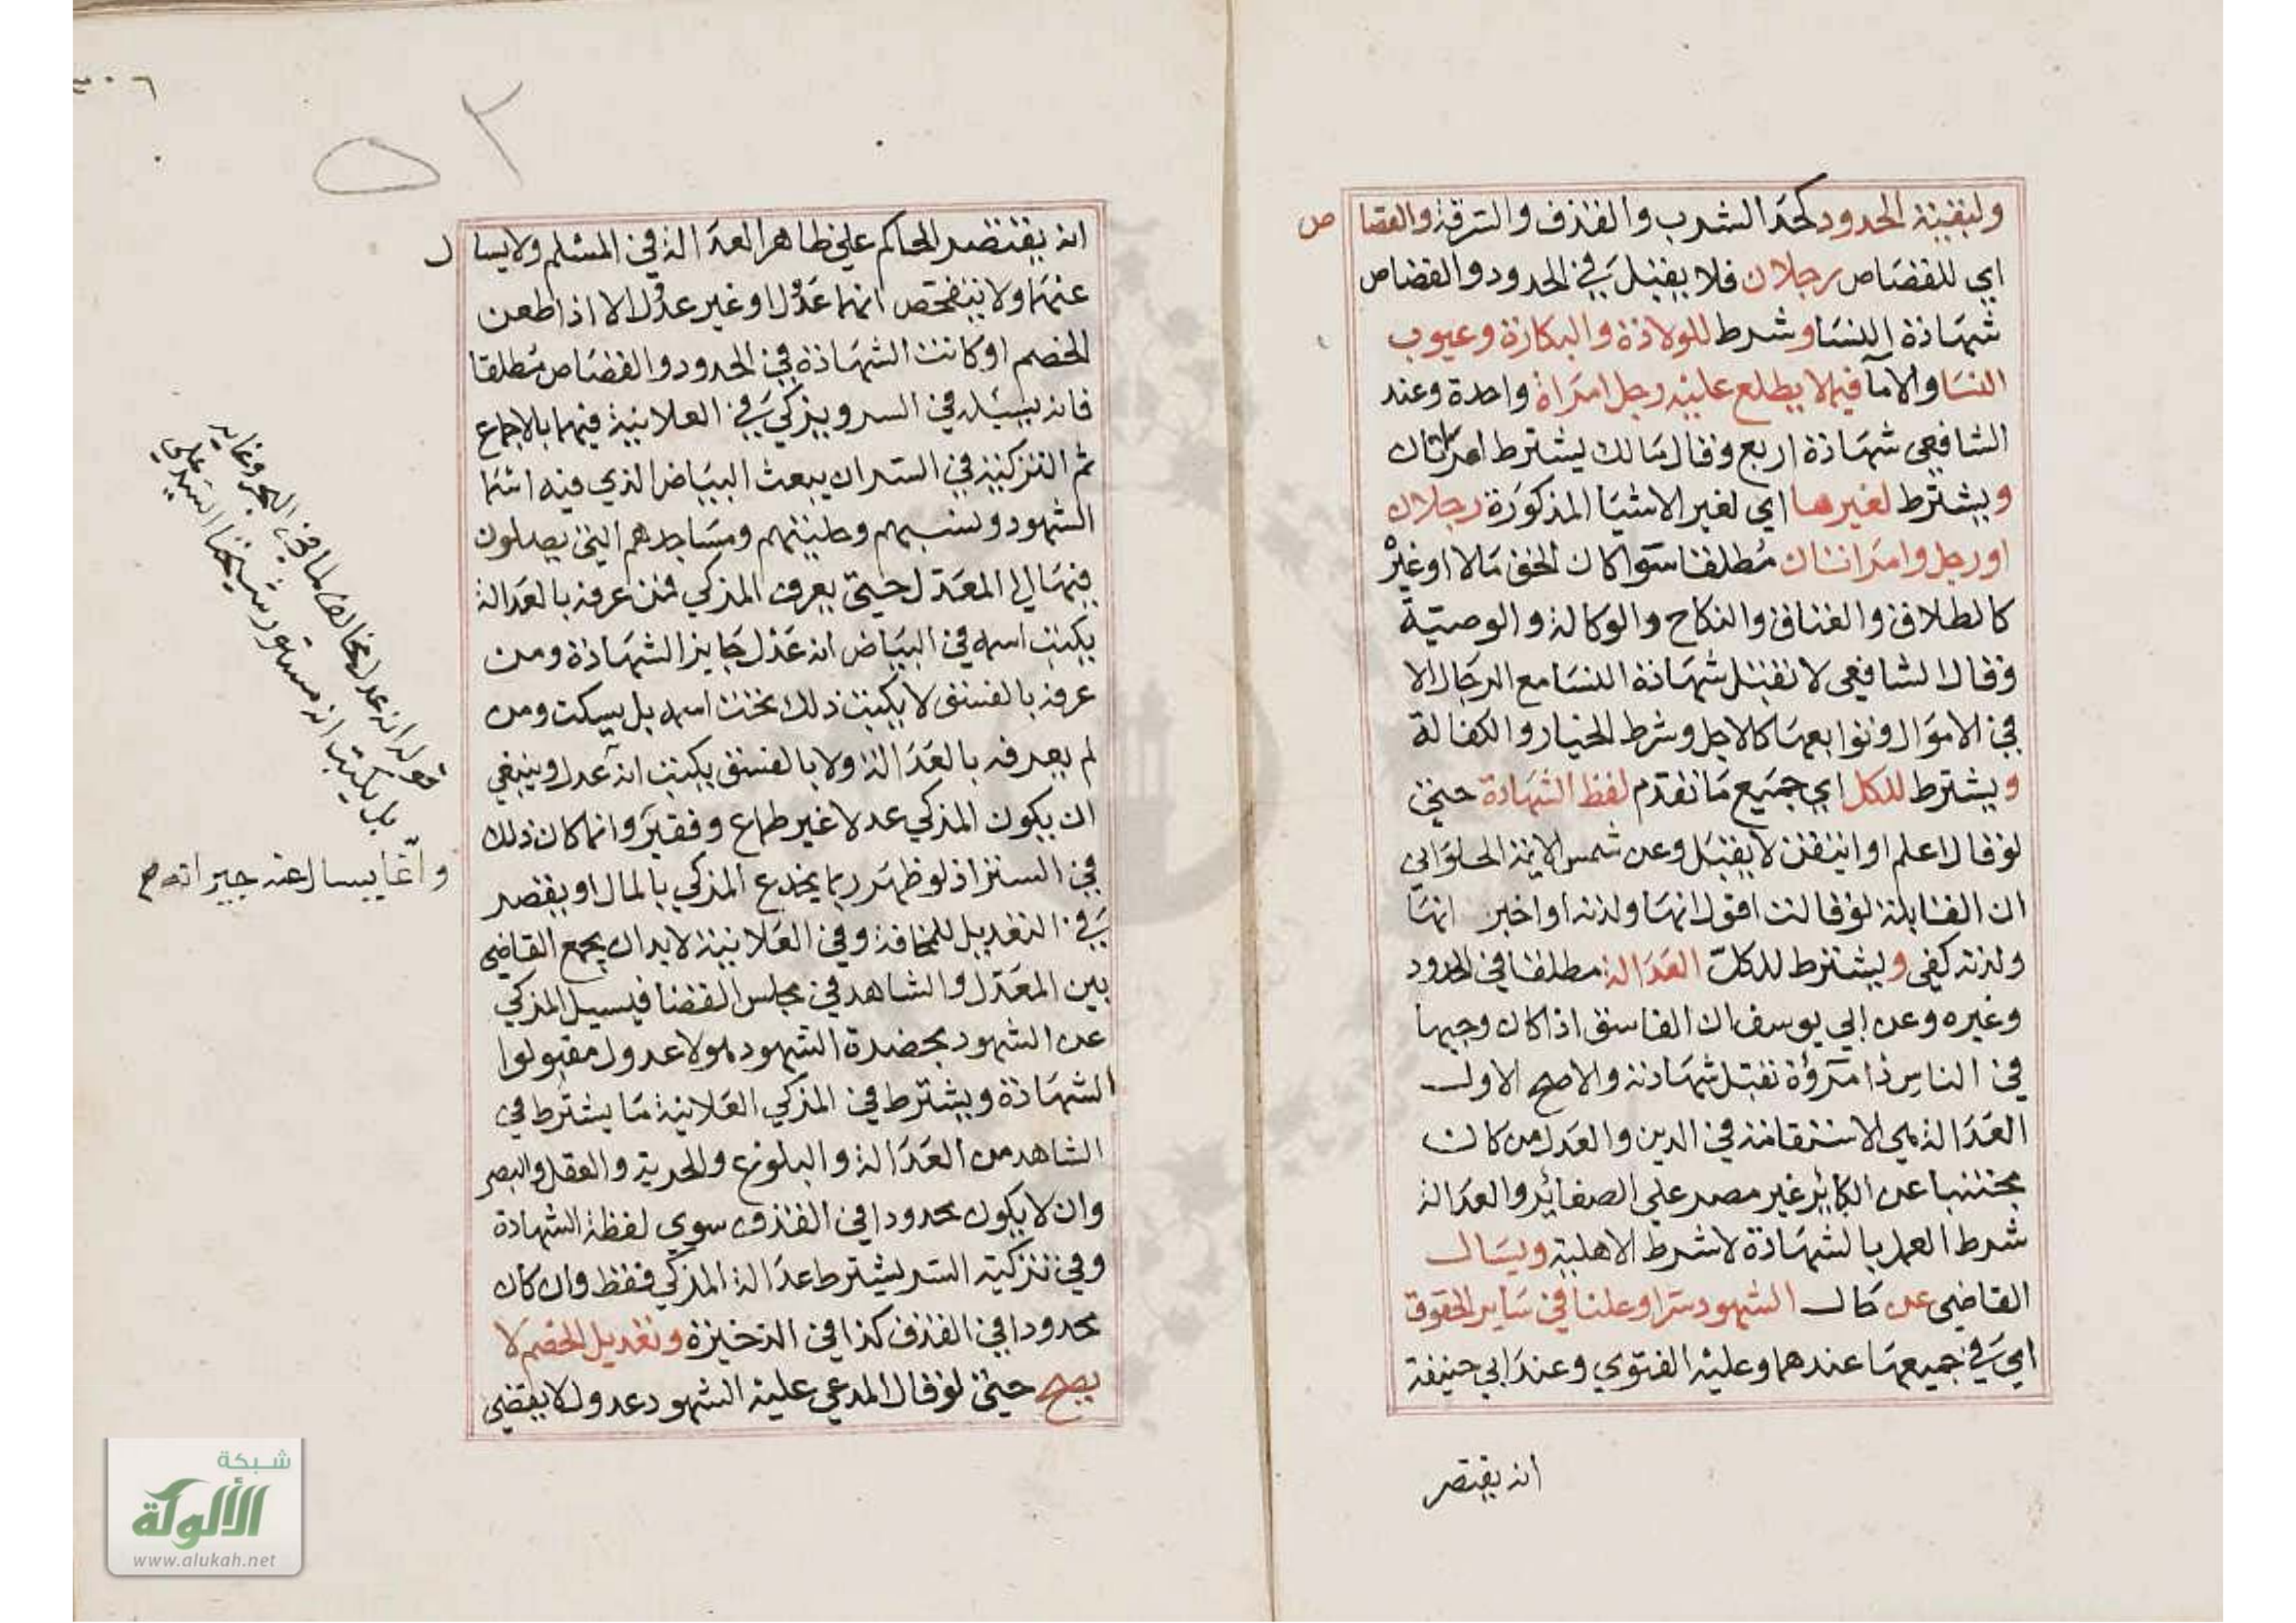 ولبقية الحدود كحد الشرب والقذف والسرقة والقصاص
اي للقصاص رجلان فلا يقبل في الحدود والقصاص
شهادة النسا وشرط للولادة والبكارة وعيوب
النسا والاما فيما لا يطلع عليه رجل امراة واحدة وعند
الشافعي شهادة اربع وقال مالك يشترط امراتان
ويشترط لغيرها اي لغير الاشيا المذكورة رجلان
او رجل وامراتان مطلقا سوا كان الحق مالا او غيره
كالطلاق والعتاق والنكاح والوكالة والوصية
وقال الشافعي لا تقبل شهادة النسا مع الرجال الا
في الاموال وتوابعها كالاجل وشرط الخيار والكفالة
ويشترط للكل اي جميع ما تقدم لفظ الشهادة حتى
لو قال اعلم او اتيقن لا يقبل وعن شمس الايمة الحلواني
ان القابلة لو قالت اقول انها ولدته او اخبر انها
ولدته كفى ويشترط للكل العدالة مطلقا في الحدود
وغيره وعن ابي يوسف ان الفاسق اذا كان وجيها
في الناس ذا مروة تقبل شهادته والاصح الاول
العدالة هي الاستقامة في الدين والعدل من كان
مجتنبا عن الكبائر غير مصر على الصغائر والعدالة
شرط العمل بالشهادة لا شرط الاهلية ويسال
القاضي عن حال الشهود سرا وعلنا في ساير الحقوق
اي في جميعها عندهما وعليه الفتوي وعند ابي حنيفة
انه يقتصر
٣٠٦
٥٢
انه يقتصر الحاكم على ظاهر العدالة في المسلم ولا يسال
عنهما ولا يتفحص انهما عدول او غير عدول الا اذا طعن
الخصم او كانت الشهادة في الحدود والقصاص مطلقا
فانه يسيل في السر ويزكي في العلانية فيهما بالاجماع
ثم التزكية في السر ان يبعث البياض الذي فيه اسما
الشهود ونسبهم وحليتهم ومساجدهم التي يصلون
فيها الي المعدل حتى يعرف المزكي فمن عرفه بالعدالة
يكتب اسمه في البياض انه عدل جايز الشهادة ومن
عرفه بالفسق لا يكتب ذلك تحت اسمه بل يسكت ومن
لم يعرفه بالعدالة ولا بالفسق يكتب انه عدل وينبغي
ان يكون المزكي عدلا غير طماع وفقير وانما كان ذلك
في الستر اذ لو ظهر ربما يخدع المزكي بالمال او يقصر
في التعديل للمخافة وفي العلانية لابد ان يجمع القاضي
بين المعدل والشاهد في مجلس القضا فيسيل المزكي
عن الشهود بحضرة الشهود هولا عدول مقبولوا
الشهادة ويشترط في المزكي العلانية ما يشترط في
الشاهد من العدالة والبلوغ والحرية والعقل والبصر
وان لا يكون محدودا في القذف سوي لفظة الشهادة
وفي تزكية السر يشترط عدالة المزكي فقط وان كان
محدودا في القذف كذا في الذخيرة وتعديل الخصم لا
يصح حتى لو قال المدعي عليه الشهود عدول لا يقضي
قوله انه عدل مخالف لما في البحر وغايه
بل يكتب انه مستور شيخنا السيد علي
وانما يسال عنه جيرانه م
شبكة
الألوكة
www.alukah.net